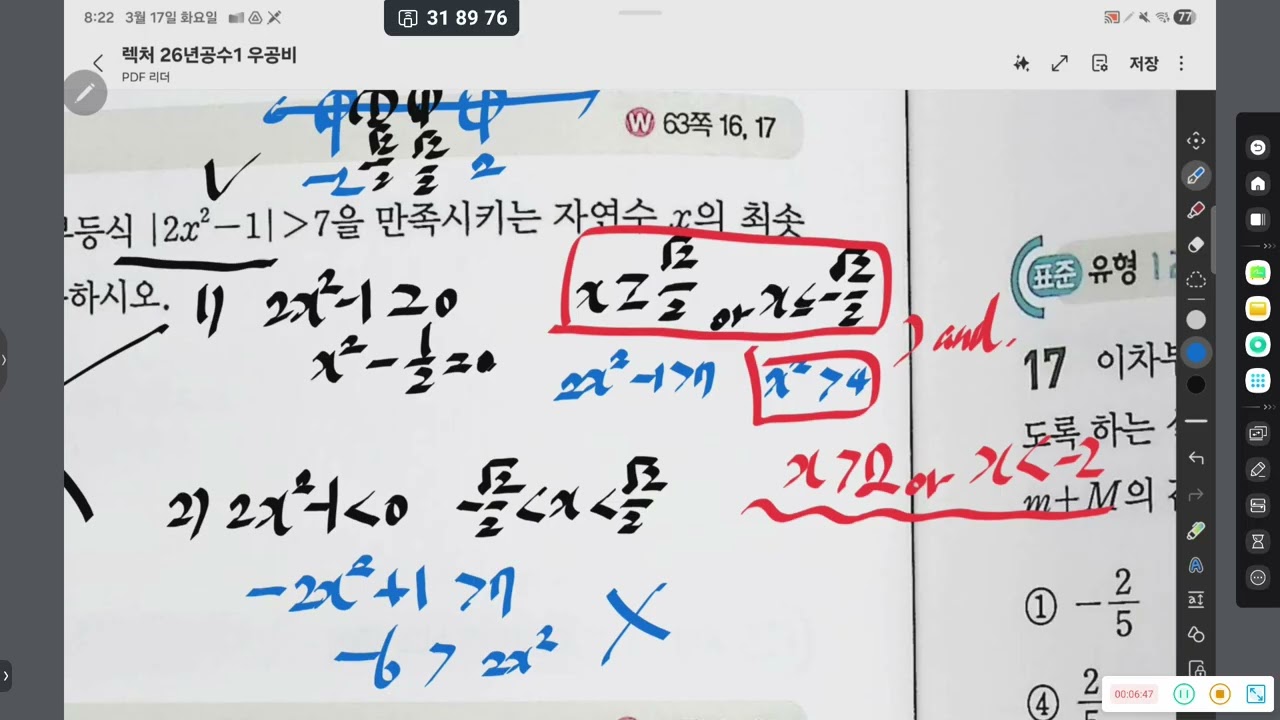 8:22 3월 17일 화요일
31 89 76
77
렉처 26년공수1 우공비
PDF 리더
저장
W 63쪽 16, 17
-2 -√2/2 √2/2 2
부등식 |2x²-1|>7을 만족시키는 자연수 x의 최솟
하시오.
1) 2x²-1≥0
x≥√2/2 or x≤-√2/2
x²-1/2≥0
2x²-1>7 x²>4
) and.
x>2 or x<-2
2) 2x²-1<0 -√2/2<x<√2/2
-2x²+1>7
-6>2x²
표준 유형 12
17 이차부
도록 하는
m+M의
① -2/5
④ 2/5
00:06:47